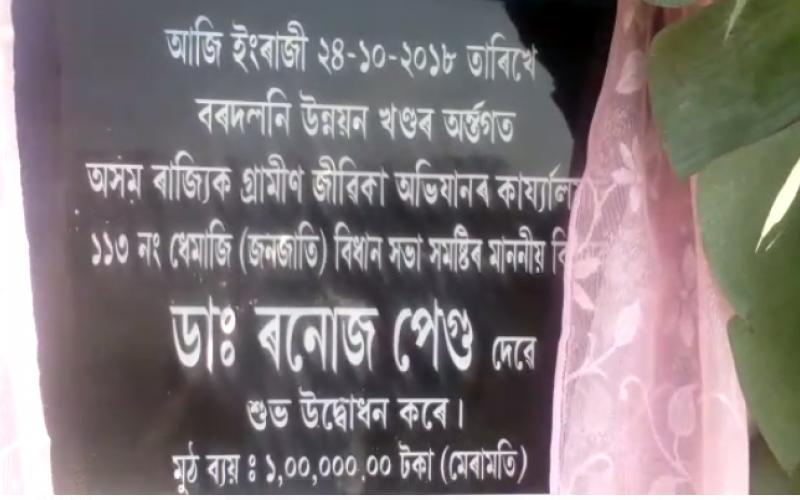 আজি ইংৰাজী ২৪-১০-২০১৮ তাৰিখে
বৰদলনি উন্নয়ন খণ্ডৰ অৰ্ন্তগত
অসম ৰাজ্যিক গ্ৰামীণ জীৱিকা অভিযানৰ
১১৩ নং ধেমাজি (জনজাতি) বিধান সভা সমষ্টিৰ মাননীয়
ডাঃ ৰনোজ পেগু দেৱে
শুভ উদ্বোধন কৰে।
মুঠ ব্যয় ঃ ১,০০,০০০.০০ টকা (মেৰামতি)